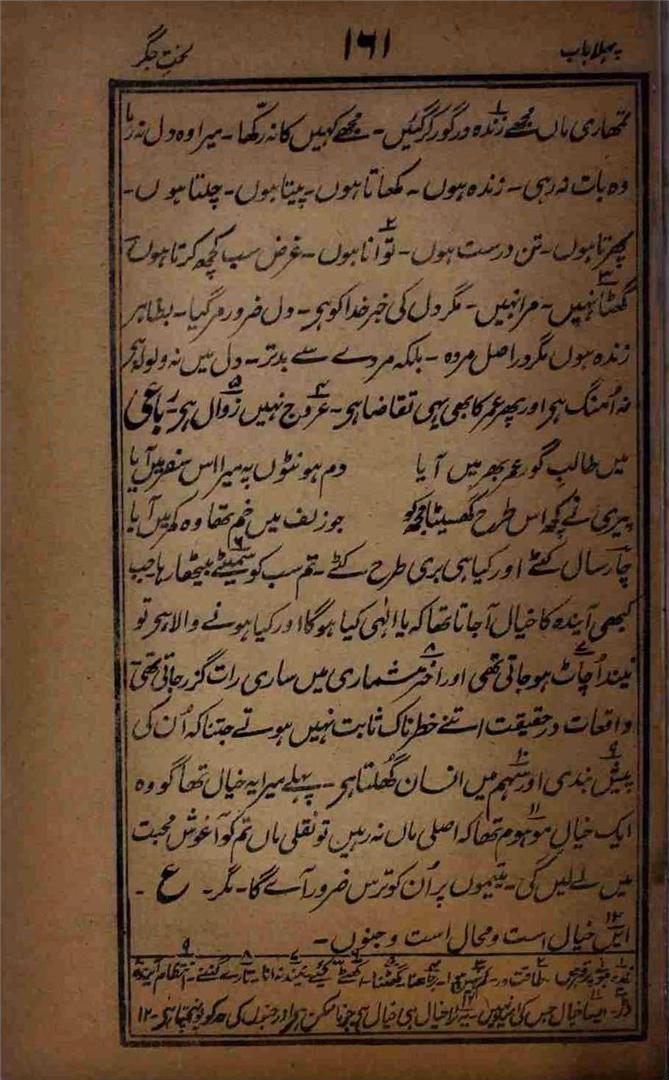 پہلا باب ۱۶۱ لخت جگر
تمھاری ماں مجھے زندہ در گور کر گئیں۔ مجھے کہیں کا نہ رکھا۔ میرا وہ دل نہ رہا
وہ بات نہ رہی۔ زندہ ہوں۔ کھاتا ہوں۔ پیتا ہوں۔ چلتا ہوں۔
پھرتا ہوں۔ تن درست ہوں۔ توانا ہوں۔ غرض سب کچھ کرتا ہوں
گھٹا نہیں۔ مرا نہیں۔ مگر دل کی خبر خدا کو ہی۔ دل ضرور مر گیا۔ بظاہر
زندہ ہوں مگر در اصل مردہ۔ بلکہ مردے سے بدتر۔ دل میں نہ ولولہ ہی
نہ اُمنگ ہی اور پھر عمر کا بھی یہی تقاضا ہی۔ عروج نہیں زوال ہی۔ رباعی
میں طالب گور عمر بھر میں آیا دم ہونٹوں پہ میرا اس سفر میں آیا
پیری نے کچھ اس طرح گھسیٹا مجھ کو جو زلف میں خم تھا وہ کمر میں آیا
چار سال کٹے اور کیا ہی بری طرح کٹے۔ تم سب کو سمیٹے بیٹھا رہا جب
کبھی آیندہ کا خیال آجاتا تھا کہ یا الٰہی کیا ہوگا اور کیا ہونے والا ہی تو
نیند اُچاٹ ہو جاتی تھی اور اختر شماری میں ساری رات گزر جاتی تھی
واقعات در حقیقت اتنے خطرناک ثابت نہیں ہوتے جتنا کہ اُن کی
پیش بندی اور سہم میں انسان گھلتا ہی۔ پہلے میرا یہ خیال تھا گو وہ
ایک خیال موہوم تھا کہ اصلی ماں نہ رہیں تو نقلی ماں تم کو آغوش محبت
میں لے لیں گی۔ یتیموں پر اُن کو ترس ضرور آے گا۔ مگر۔ ع۔
ایں خیال است و محال است و جنوں۔
زندہ طاقت ور۔ گھٹنا۔ اکھٹے کیے نیند نہ آنا۔ تارے گننے۔ انتظام آیندہ
ڈر۔ ایسا خیال جس کی نہیں۔ یہ خیال ہی خیال ہی جو نا ممکن ہی اور جنوں کی حد کو پہنچتا ہی۔ ۱۲